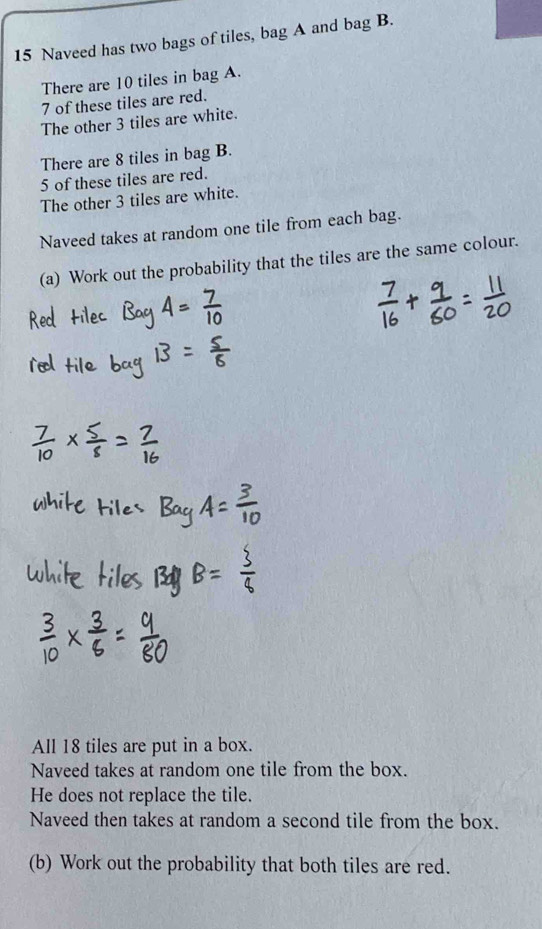 15 Naveed has two bags of tiles, bag A and bag B.
There are 10 tiles in bag A.
7 of these tiles are red.
The other 3 tiles are white.
There are 8 tiles in bag B.
5 of these tiles are red.
The other 3 tiles are white.
Naveed takes at random one tile from each bag.
(a) Work out the probability that the tiles are the same colour.
Red tiles Bag A = 7/10
7/16 + 9/80 = 11/20
red tile bag B = 5/8
7/10 × 5/8 = 7/16
white tiles Bag A = 3/10
white tiles Bag B = 3/8
3/10 × 3/8 = 9/80
All 18 tiles are put in a box.
Naveed takes at random one tile from the box.
He does not replace the tile.
Naveed then takes at random a second tile from the box.
(b) Work out the probability that both tiles are red.